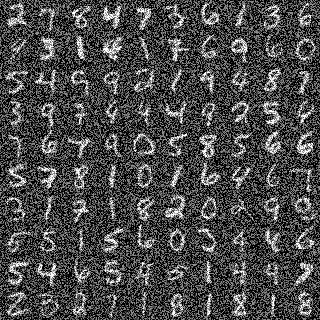 2 7 8 4 7 3 6 1 3 6
9 3 1 4 1 7 6 9 6 0
5 4 9 9 2 1 9 4 8 7
3 9 7 9 4 4 9 2 5 4
7 6 7 9 0 5 8 5 6 6
5 7 8 1 0 1 6 4 6 7
3 1 7 1 8 2 0 2 9 0
5 5 1 5 6 0 3 4 4 6
5 4 6 5 4 5 1 4 4 7
2 3 2 7 1 8 1 8 1 8